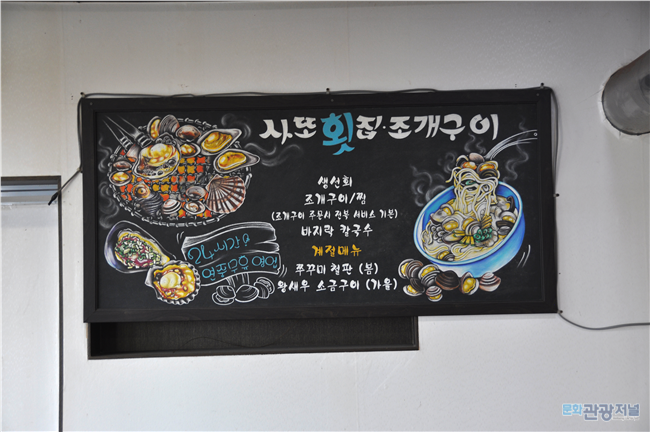 사또횟집·조개구이
생선회
조개구이/찜
(조개구이 주문시 전복 서비스 기본)
바지락 칼국수
계절메뉴
쭈꾸미 철판 (봄)
왕새우 소금구이 (가을)
문화관광저널